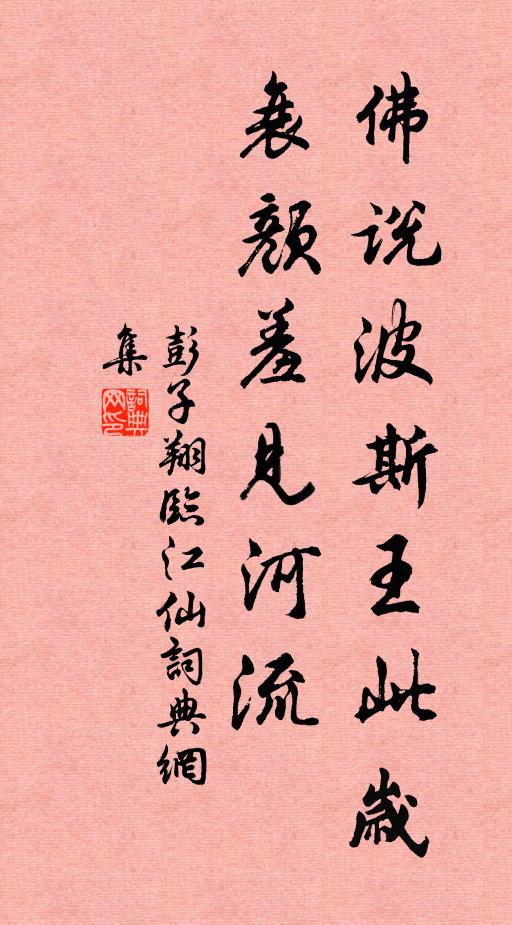 佛説波斯王此歲
衰顏羞見河流
彭子翔臨江仙詞典網
集
詞典
网印